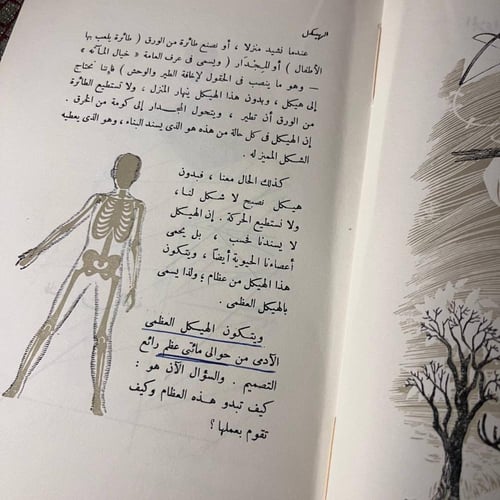 الهيكل
عندما نشيد منزلا ، أو نصنع طائرة من الورق ( طائرة يلعب بها
الأطفال ) أو المِجْدَار ( ويسمى فى عرف العامة « خيال المآتة »
— وهو ما ينصب فى الحقول لإخافة الطير والوحش ) فإننا نحتاج
إلى هيكل ، وبدون هذا الهيكل ينهار المنزل ، ولا تستطيع الطائرة
من الورق أن تطير ، ويتحول المجدار إلى كومة من الخرق .
إن الهيكل فى كل حالة من هذه هو الذى يسند البناء ، وهو الذى يعطيه
الشكل المميز له .
كذلك الحال معنا ، فبدون
هيكل نصبح لا شكل لنا ،
ولا نستطيع الحركة . إن الهيكل
لا يسندنا فحسب ، بل يحمى
أعضاءنا الحيوية أيضاً ، ويتكون
هذا الهيكل من عظام ؛ ولذا يسمى
بالهيكل العظمى .
ويتكون الهيكل العظمى
الآدمى من حوالى مائتى عظم رائع
التصميم . والسؤال الآن هو :
كيف تبدو هذه العظام وكيف
تقوم بعملها ؟